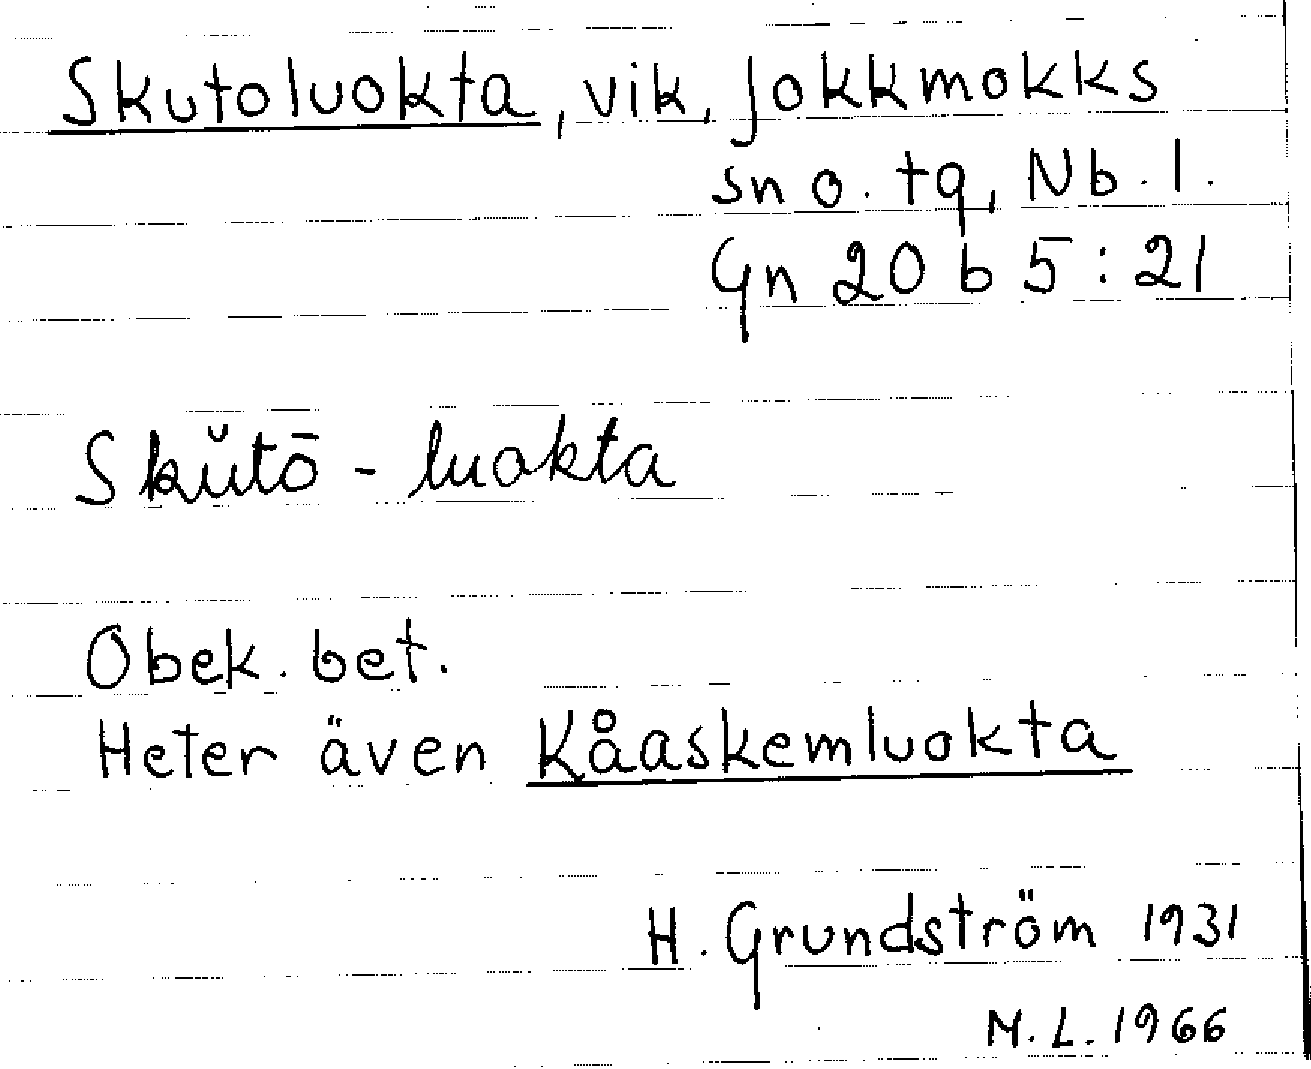 Skutoluokta, vik, Jokkmokks
sn o. tg, Nb. l.
Gn 20 b 5:21
Skŭtō - luokta
Obek. bet.
Heter även Kåaskemluokta
H. Grundström 1931
M. L. 1966